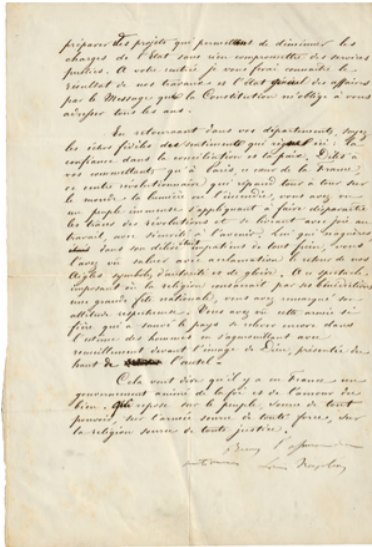 préparer des projets qui permettent de diminuer les
charges de l'Etat sans rien compromettre des services
publics. A votre rentrée je vous ferai connaître le
résultat de nos travaux et l'état général des affaires
par le Message que la Constitution m'oblige à vous
adresser tous les ans.
En retournant dans vos départements, soyez
les échos fidèles des sentiments qui règnent ici : la
confiance dans la conciliation et la paix. Dites à
vos commettants qu'à Paris, ce cœur de la France,
ce centre révolutionnaire qui répand tour à tour sur
le monde la lumière ou l'incendie, vous avez vu
un peuple immense s'appliquant à faire disparaître
les traces des révolutions et se livrant avec joie au
travail, avec sécurité à l'avenir. Lui qui naguères
dans son délire était impatient de tout frein, vous
l'avez vu saluer avec acclamation le retour de nos
Aigles symboles d'autorité et de gloire. A ce spectacle
imposant où la religion consacrait par ses bénédictions
une grande fête nationale, vous avez remarqué son
attitude respectueuse. Vous avez vu cette armée si
fière qui a sauvé le pays se relever encore dans
l'estime des hommes en s'agenouillant avec
recueillement devant l'image de Dieu, présentée du
haut de l'autel.
Cela veut dire qu'il y a en France un
gouvernement animé de la foi et de l'amour du
bien. Qui repose sur le peuple, source de tout
pouvoir, sur l'armée source de toute force, sur
la religion source de toute justice.